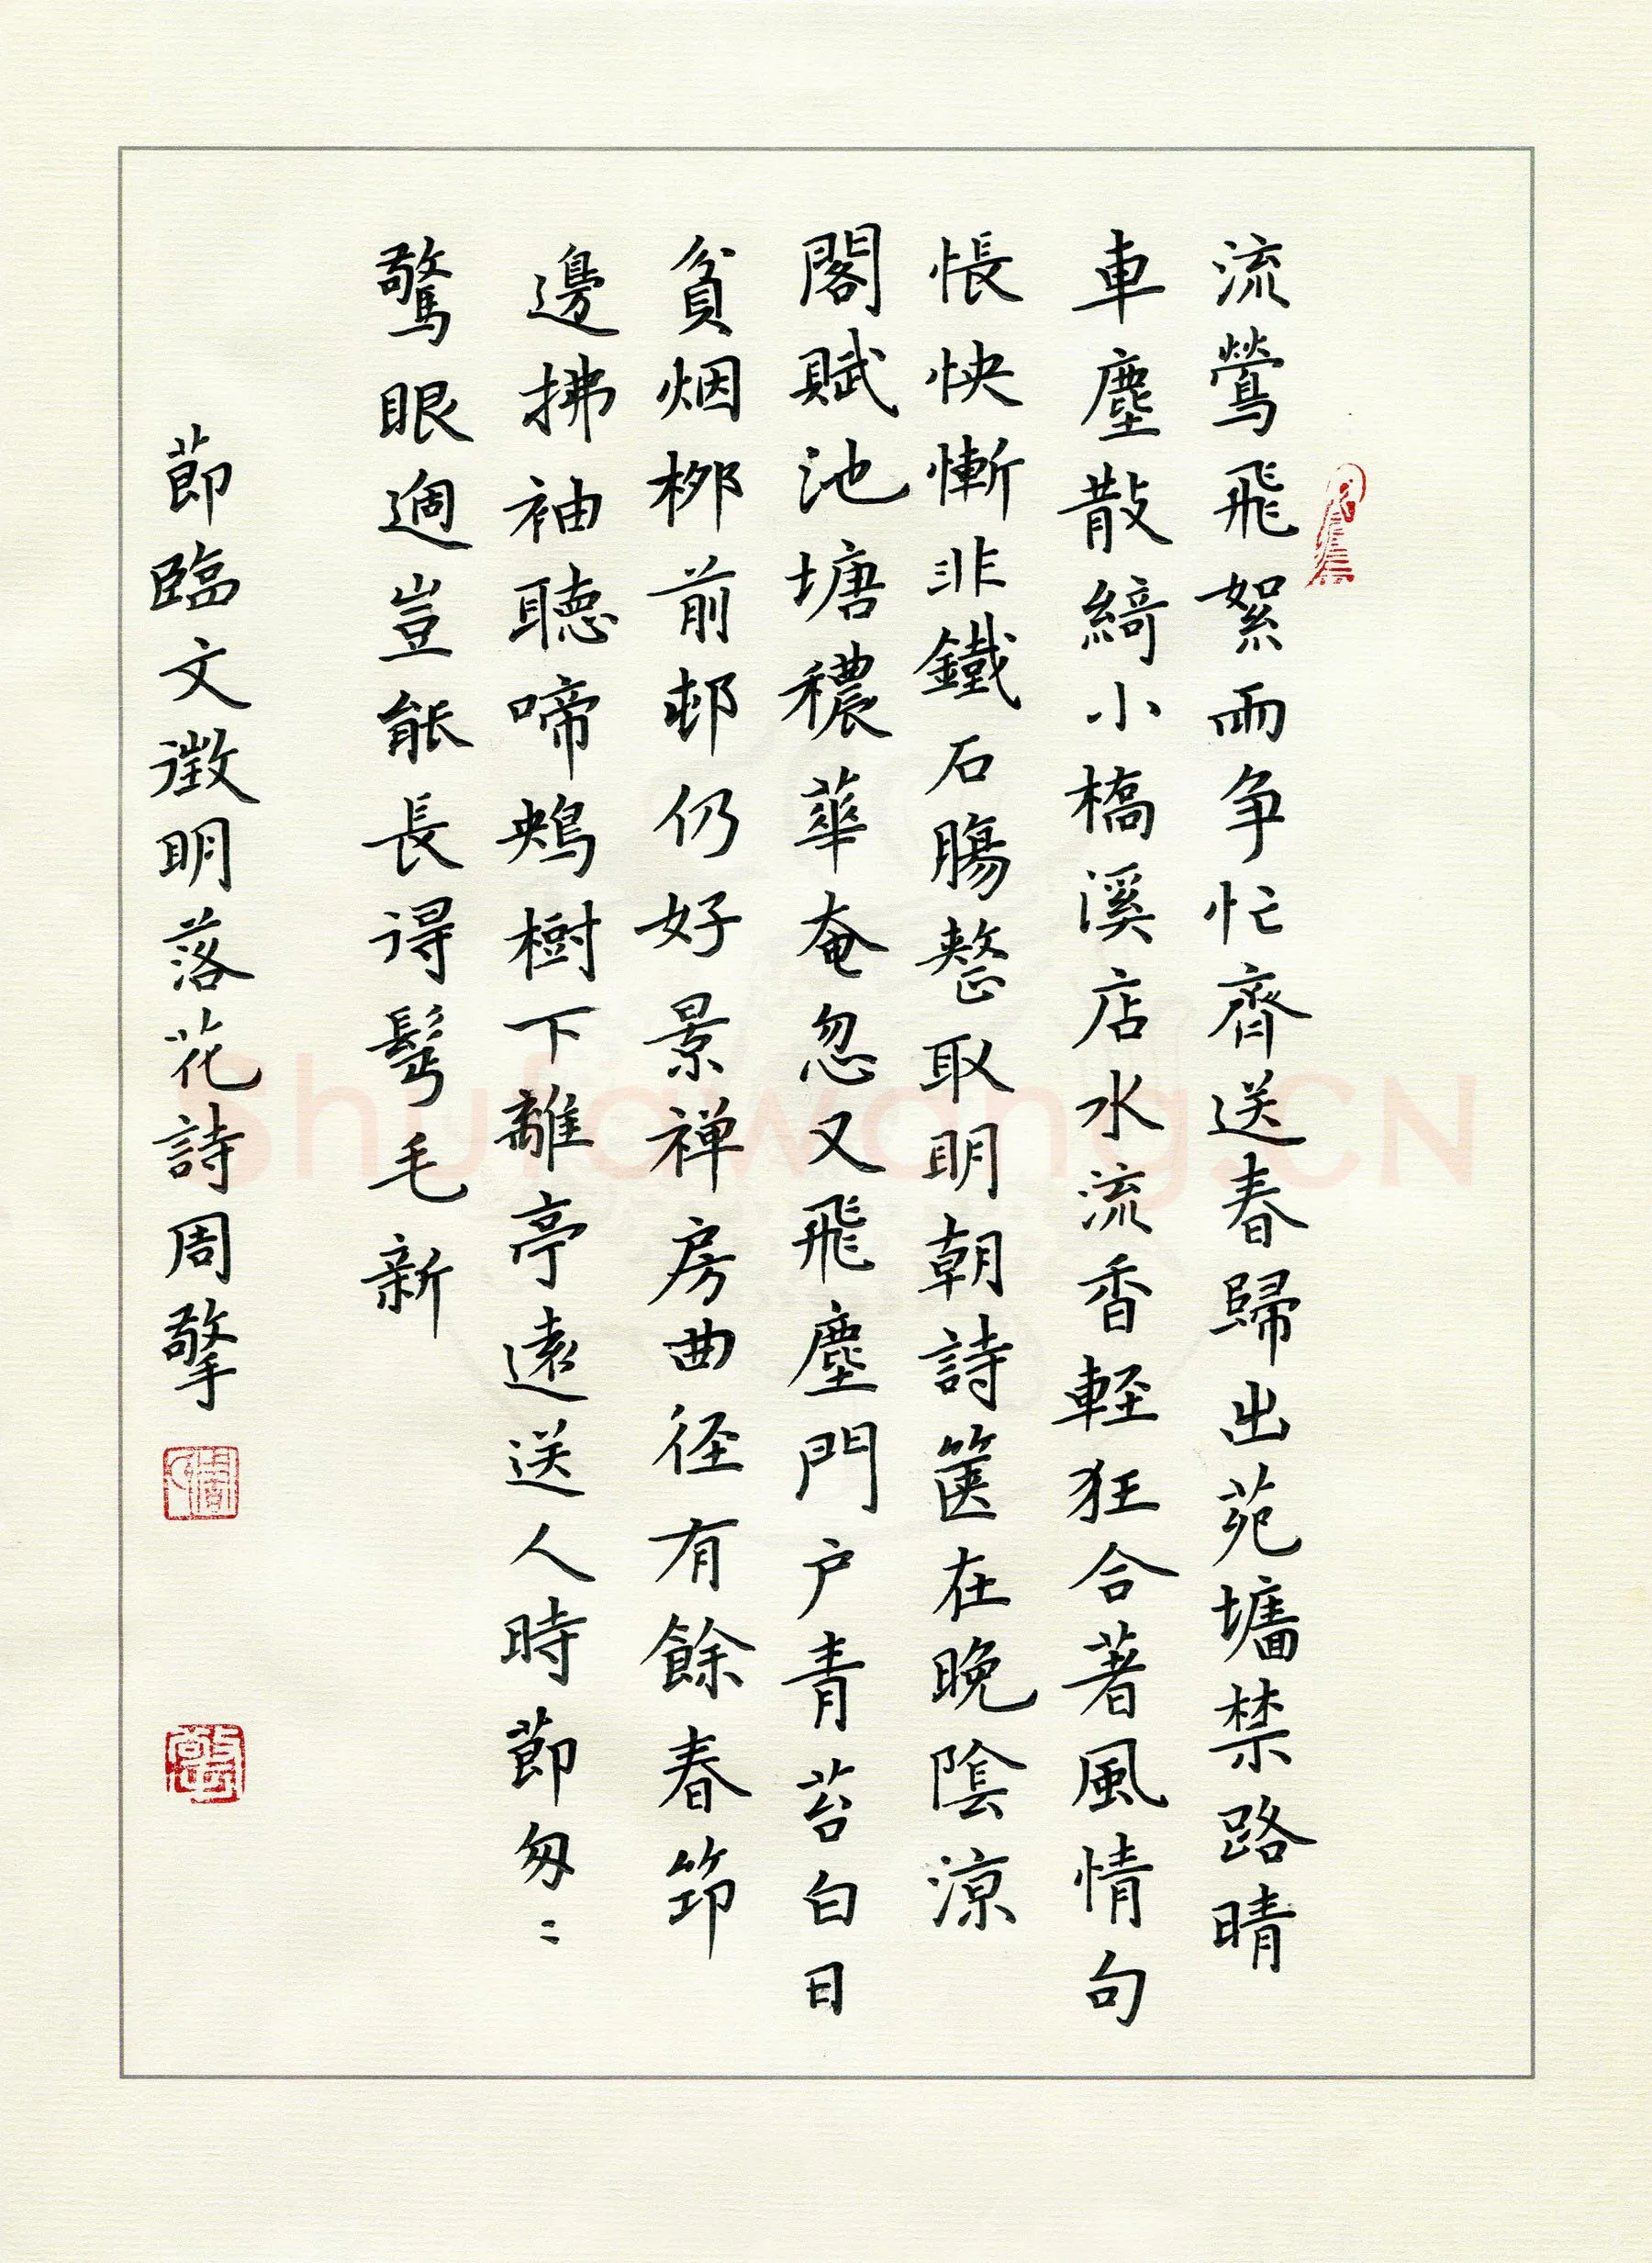 流鶯飛絮兩争忙齊送春歸出苑墻禁路晴
車塵散綺小橋溪店水流香輕狂合著風情句
悵怏慚非鐵石腸整取明朝詩篋在晚陰涼
閣賦池塘穠華奄忽又飛塵門户青苔白日
貧烟栁前邨仍好景禅房曲径有餘春節
邊拂袖聽啼鴂樹下離亭遠送人時莭匆〻
驚眼過豈能長得髩毛新
莭臨文徵明落花詩周擎
Shufawang.CN